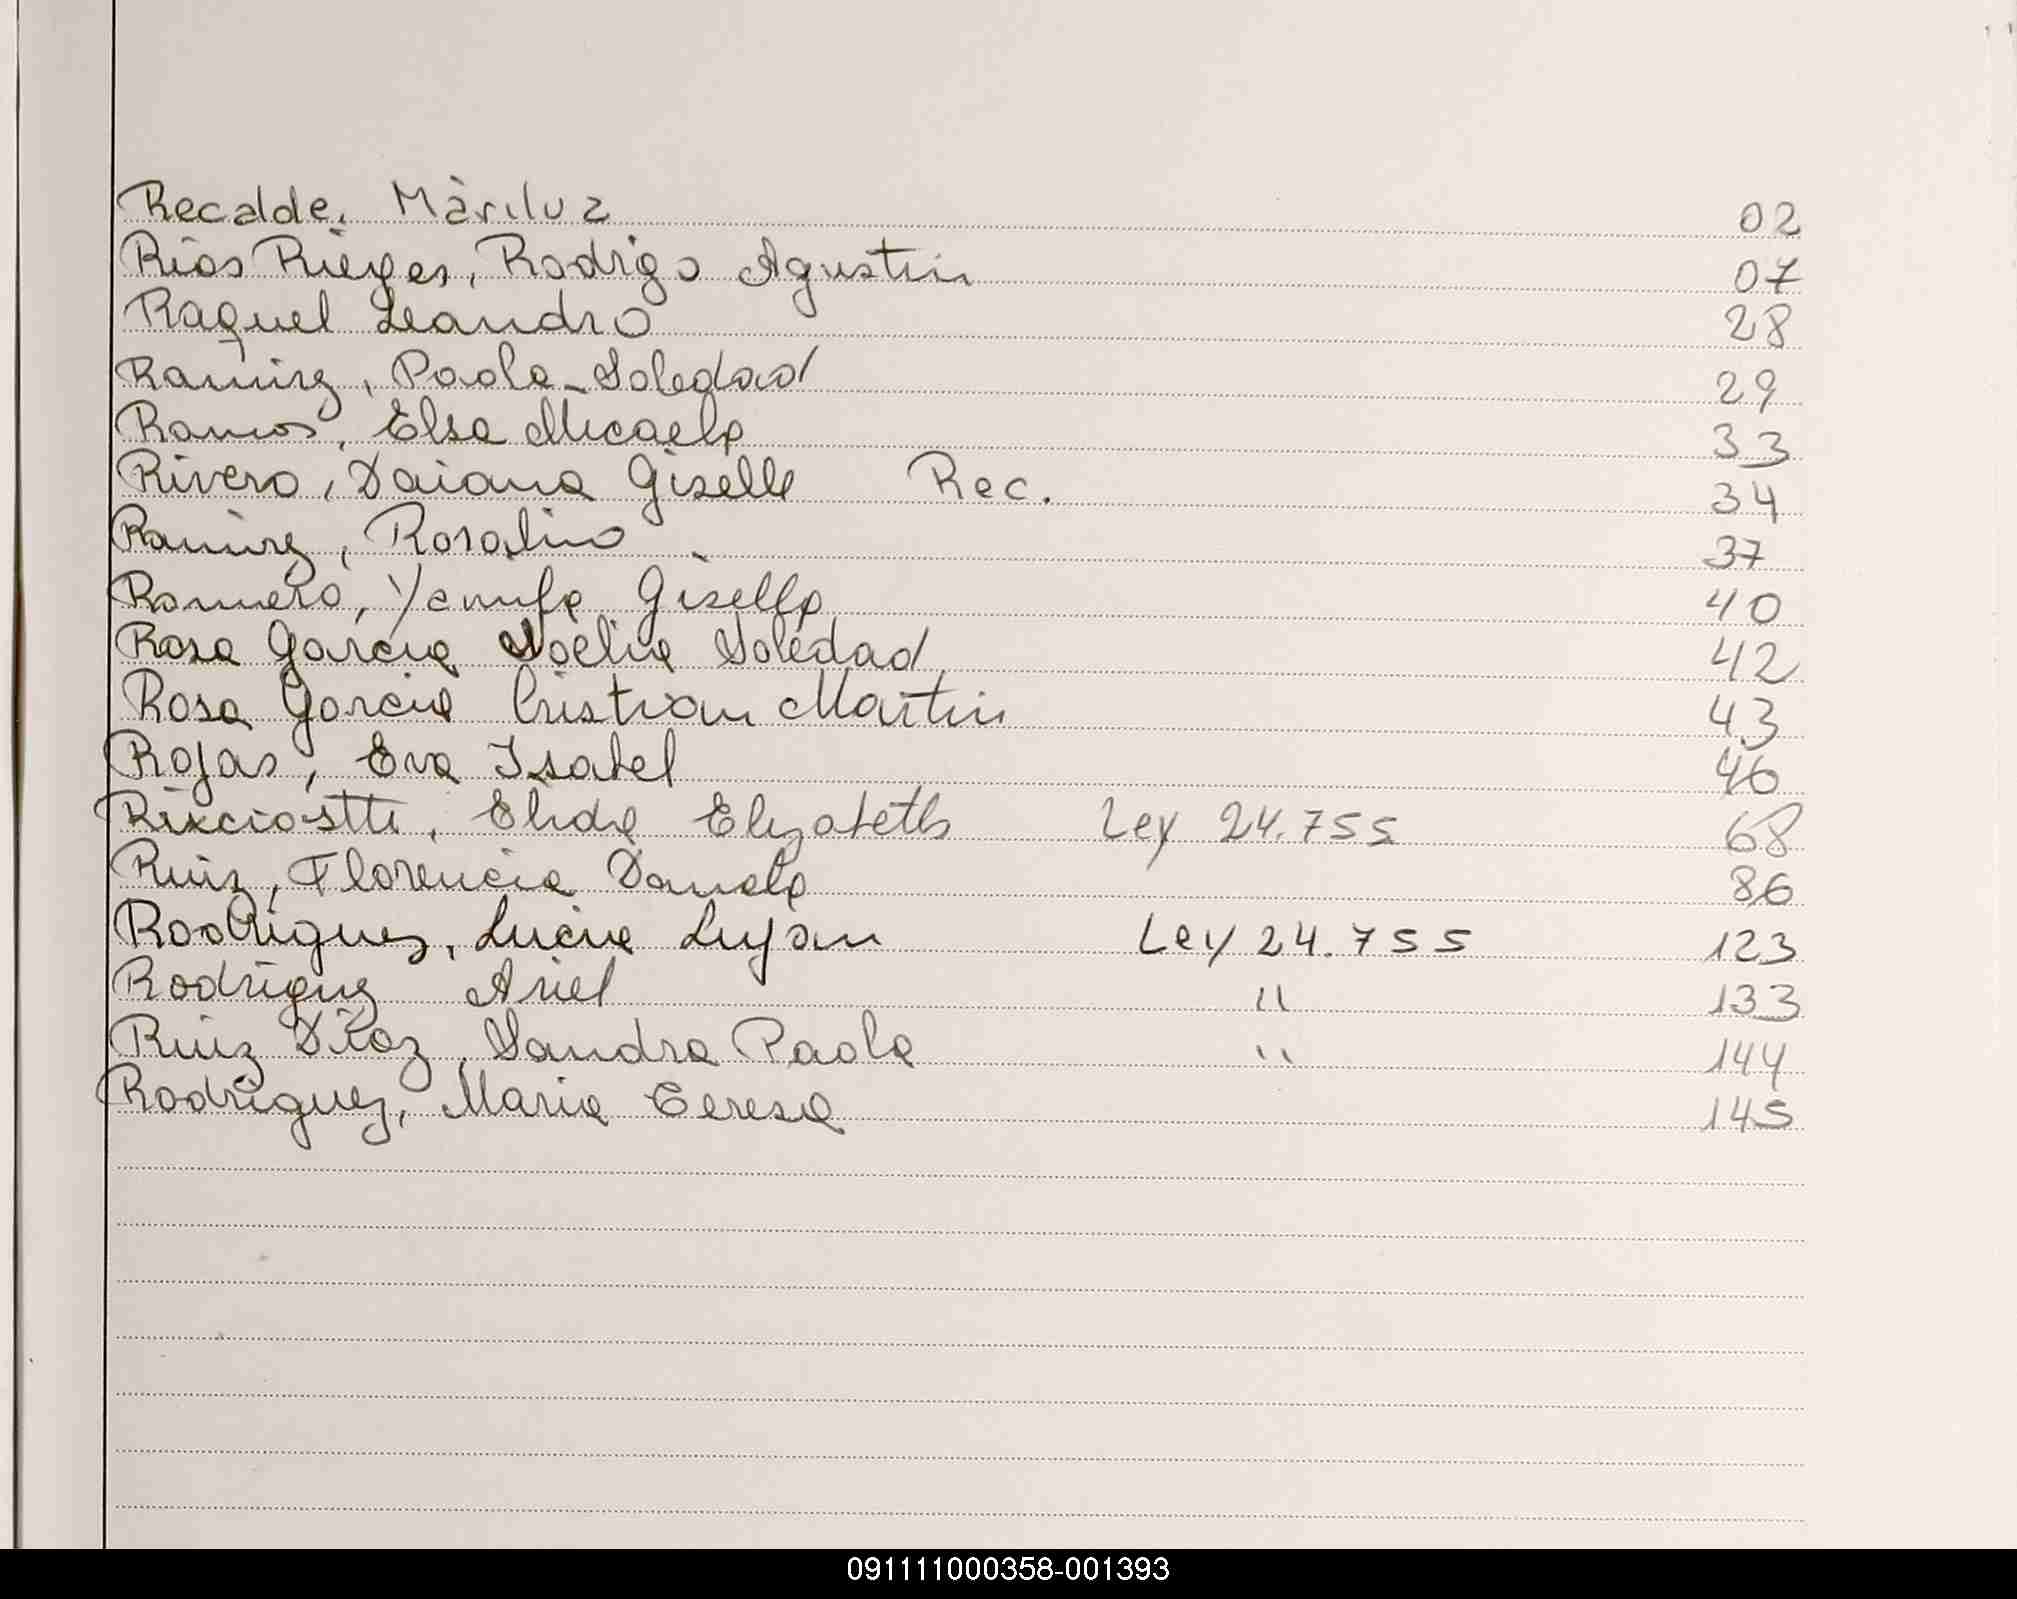 Recalde, Màriluz 02
Rios Rieyes, Rodrigo Agustin 07
Raquel Leandro 28
Ramirez, Paola Soledad 29
Ramos, Elsa Micaela 33
Rivero, Daiana Giselle Rec. 34
Ramirez, Rosalino 37
Romero, Yamila Gisella 40
Rosa Garcia Noelia Soledad 42
Rosa Garcia Cristian Martin 43
Rojas, Eva Isabel 46
Elida Elizabeth Ley 24.755 68
Ruiz, Florencia Daniela 86
Rodriguez, Lucia Lujan Ley 24.755 123
Rodriguez Ariel " 133
Ruiz Diaz, Sandra Paola " 144
Rodriguez, Maria Teresa 145
091111000358-001393